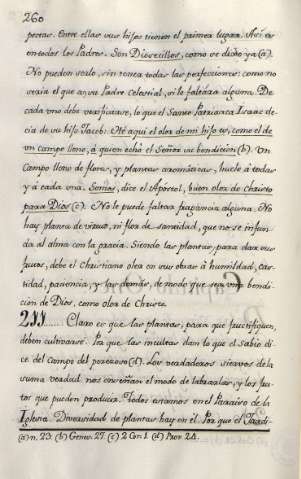 260
pecras. Entre ellas sus hijos tienen el primer lugar. Assi es
en todos los Padres. Son Diosecillos, como se dixo ya (a).
No pueden serlo, sin tener todas las perfecciones: como no
seria el que es su Padre Celestial, si le faltára alguna. De
cada uno debe verificarse, lo que el Santo Patriarca Isaac de-
cia de su hijo Jacob: Olè aqui el olor de mi hijo es, como el de
un campo lleno, á quien echó el Señor su bendicion (b). Un
Campo lleno de flores, y plantas aromáticas, huele á todas
y á cada una. Somos, dice el Apostol, buen olor de Christo
para Dios (c). No le puede faltar fragancia alguna. No
hay planta de virtud, ni flor de santidad, que no se infun-
da al alma con la gracia. Siendo las plantas, para dar sus
frutos, debe el Christiano oler en sus obras á humildad, cas-
tidad, paciencia, y las demás, de modo que sea una bendi-
cion de Dios, como olor de Christo.
211 Claro es que las plantas, para que fructifiquen,
deben cultivarse. Por que las incultas dan lo que el Sabio di-
ce del campo del perezoso (d). Los verdaderos siervos de la
suma verdad nos enseñan el modo de labrarlas, y los fru-
tos que pueden producir. Todos estamos en el Paraiso de la
Iglesia. Diversidad de plantas hay en él. Por que el Jardi-
(a) n. 23. (b) Genes. 27. (c) 2 Cor. 1. (d) Prov. 24.